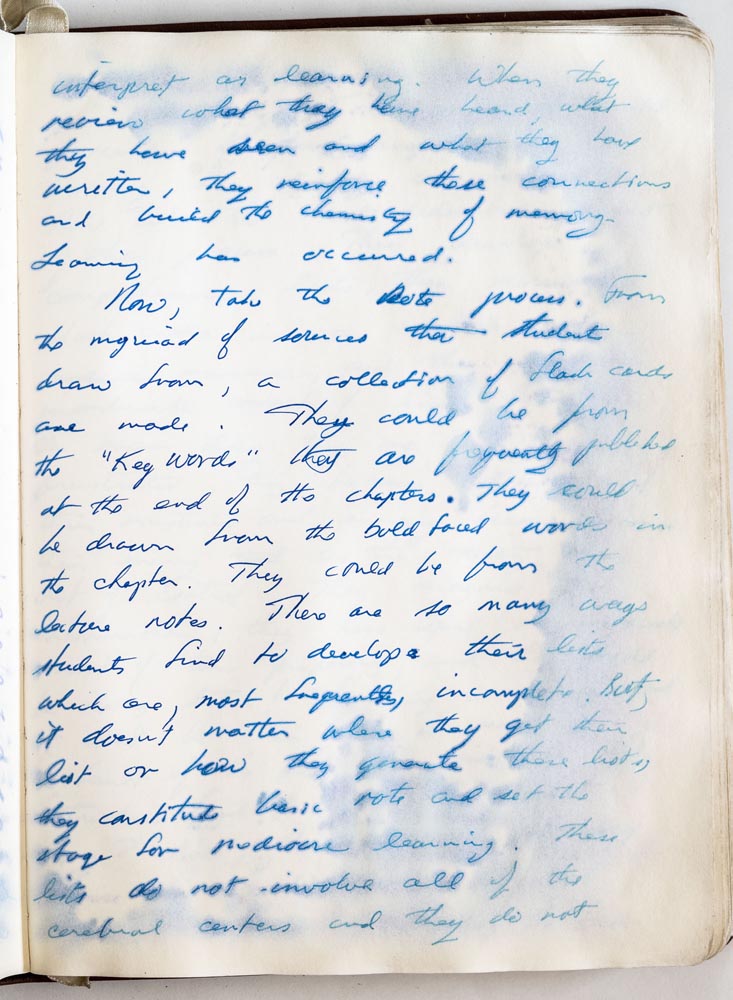 interpret as learning. When they
review what they have heard, what
they have seen and what they have
written, they reinforce these connections
and build the chemistry of memory.
Learning has occurred.
Now, take the rote process. From
the myriad of sources that student
draw from, a collection of flash cards
are made. They could be from
the "Key words" that are frequently published
at the end of the chapters. They could
be drawn from the bold faced words in
the chapter. They could be from the
lecture notes. There are so many ways
students find to develope their lists
which are, most frequently, incomplete. But,
it doesn't matter where they get their
list or how they generate these lists,
they constitute basic rote and set the
stage for mediocre learning. These
lists do not involve all of the
cerebral centers and they do not